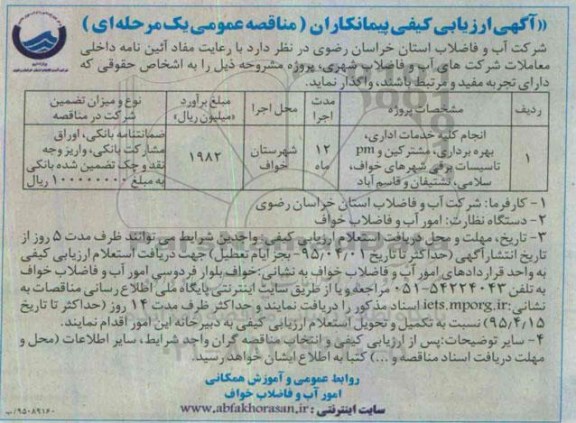 «آگهی ارزیابی کیفی پیمانکاران (مناقصه عمومی یک مرحله ای)»
شرکت آب و فاضلاب استان خراسان رضوی در نظر دارد با رعایت مفاد آئین نامه داخلی
معاملات شرکت های آب و فاضلاب شهری، پروژه مشروحه ذیل را به اشخاص حقوقی که
دارای تجربه مفید و مرتبط باشند، واگذار نماید.
ردیف مشخصات پروژه مدت اجرا محل اجرا مبلغ برآورد «میلیون ریال» نوع و میزان تضمین شرکت در مناقصه
۱ انجام کلیه خدمات اداری، بهره برداری، مشترکین و pm تاسیسات برقی شهرهای خواف، سلامی، نشتیفان و قاسم آباد ۱۲ ماه شهرستان خواف ۱۹۸۲ ضمانتنامه بانکی، اوراق مشارکت بانکی، واریز وجه نقد و چک تضمین شده بانکی به مبلغ ۱۰۰۰۰۰۰۰۰ ریال
۱- کارفرما: شرکت آب و فاضلاب استان خراسان رضوی
۲- دستگاه نظارت: امور آب و فاضلاب خواف
۳- تاریخ، مهلت و محل دریافت استعلام ارزیابی کیفی: واجدین شرایط می توانند ظرف مدت ۵ روز از
تاریخ انتشار آگهی (حداکثر تا تاریخ ۹۵/۰۴/۰۱- بجز ایام تعطیل) جهت دریافت استعلام ارزیابی کیفی
به واحد قراردادهای امور آب و فاضلاب خواف به نشانی: خواف بلوار فردوسی امور آب و فاضلاب خواف
به تلفن ۵۴۲۲۴۰۴۳-۰۵۱ مراجعه و یا از طریق سایت اینترنتی پایگاه ملی اطلاع رسانی مناقصات به
نشانی: iets.mporg.ir اسناد مذکور را دریافت نمایند و حداکثر ظرف مدت ۱۴ روز (حداکثر تا تاریخ
۹۵/۴/۱۵) نسبت به تکمیل و تحویل استعلام ارزیابی کیفی به دبیرخانه این امور اقدام نمایند.
۴- سایر توضیحات: پس از ارزیابی کیفی و انتخاب مناقصه گران واجد شرایط، سایر اطلاعات (محل و
مهلت دریافت اسناد مناقصه و ...) کتبا به اطلاع ایشان خواهد رسید.
روابط عمومی و آموزش همگانی
امور آب و فاضلاب خواف
سایت اینترنتی: www.abfakhorasan.ir
۹۵۰۸۹۱۶۰/ب